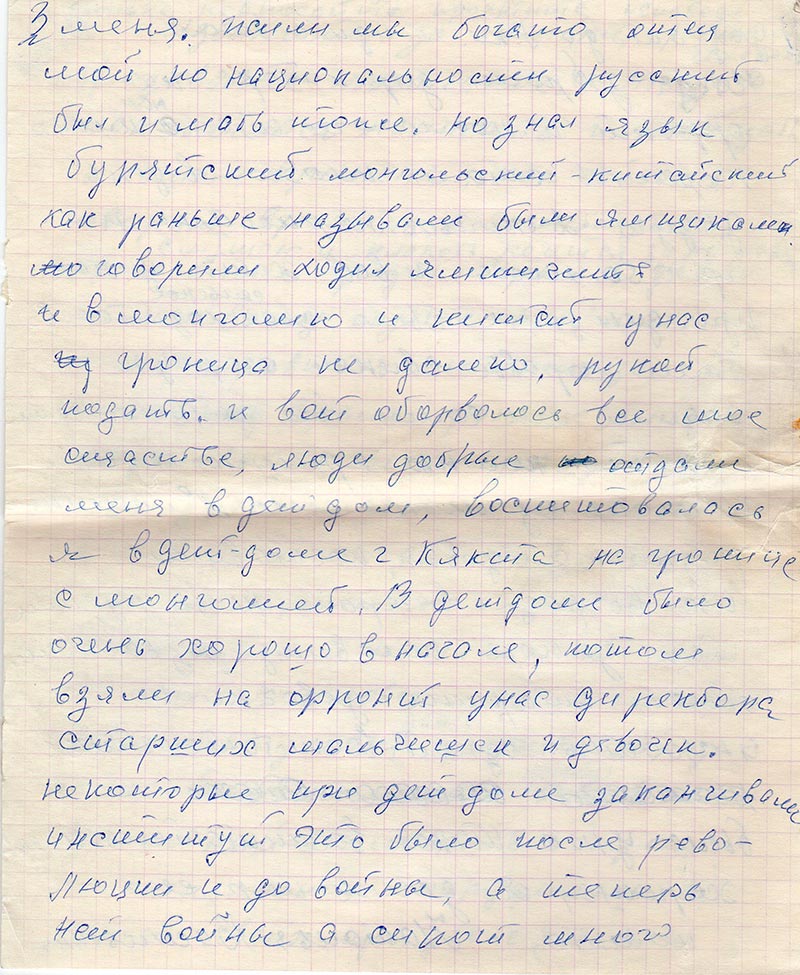 3 меня. жили мы богато отец
мой по национальности русский
был и мать тоже. но знал язык
бурятский. монгольский-китайский
как раньше называли были ямщиками.
говорили ходил ямщичить
и в монголию и китай у нас
граница не далеко, рукой
подать. и вот оборвалось все мое
счастье, люди добрые отдали
меня в дет дом, воспитовалась
я в дет-доме г Кяхта на границе
с монголией. В детдоме было
очень хорошо в начале, потом
взяли на фронт у нас директора
старших мальчишек и девочек.
некоторые при дет доме заканчивали
институт это было после рево-
люции и до войны, а теперь
нет войны а сирот много